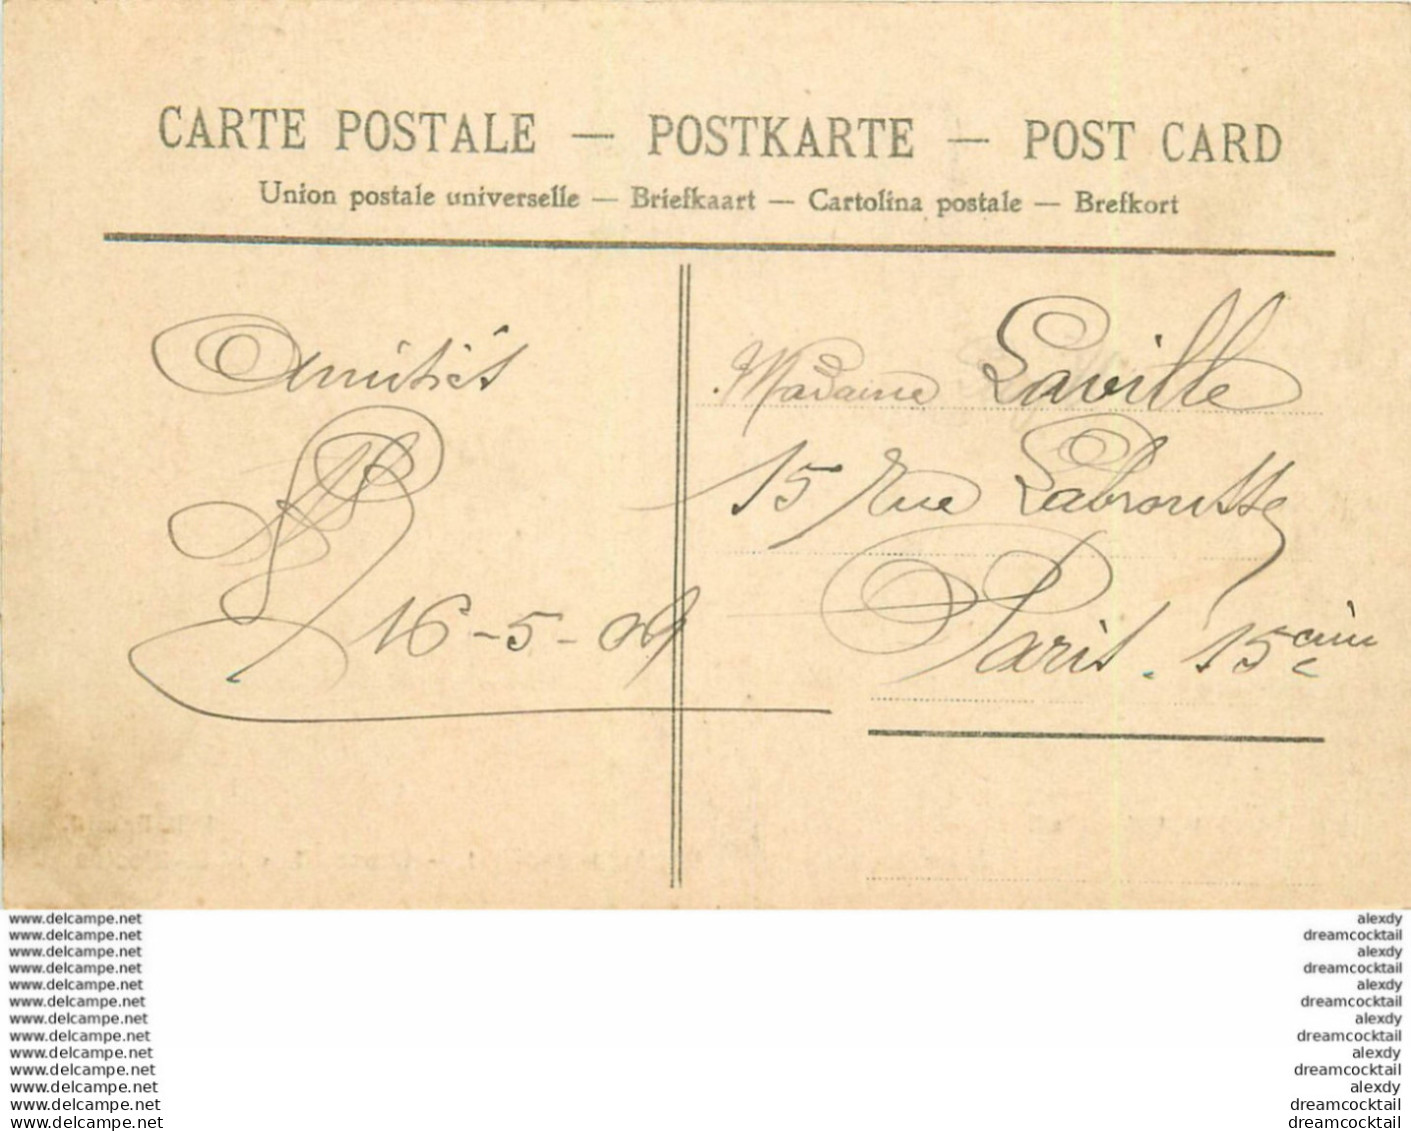 CARTE POSTALE — POSTKARTE — POST CARD
Union postale universelle — Briefkaart — Cartolina postale — Brefkort
Amitiés
16-5-09
Madame Laville
15 rue Labrousse
Paris. 15ème
www.delcampe.net
www.delcampe.net
www.delcampe.net
www.delcampe.net
www.delcampe.net
www.delcampe.net
www.delcampe.net
www.delcampe.net
www.delcampe.net
www.delcampe.net
www.delcampe.net
www.delcampe.net
www.delcampe.net
alexdy
dreamcocktail
alexdy
dreamcocktail
alexdy
dreamcocktail
alexdy
dreamcocktail
alexdy
dreamcocktail
alexdy
dreamcocktail
dreamcocktail